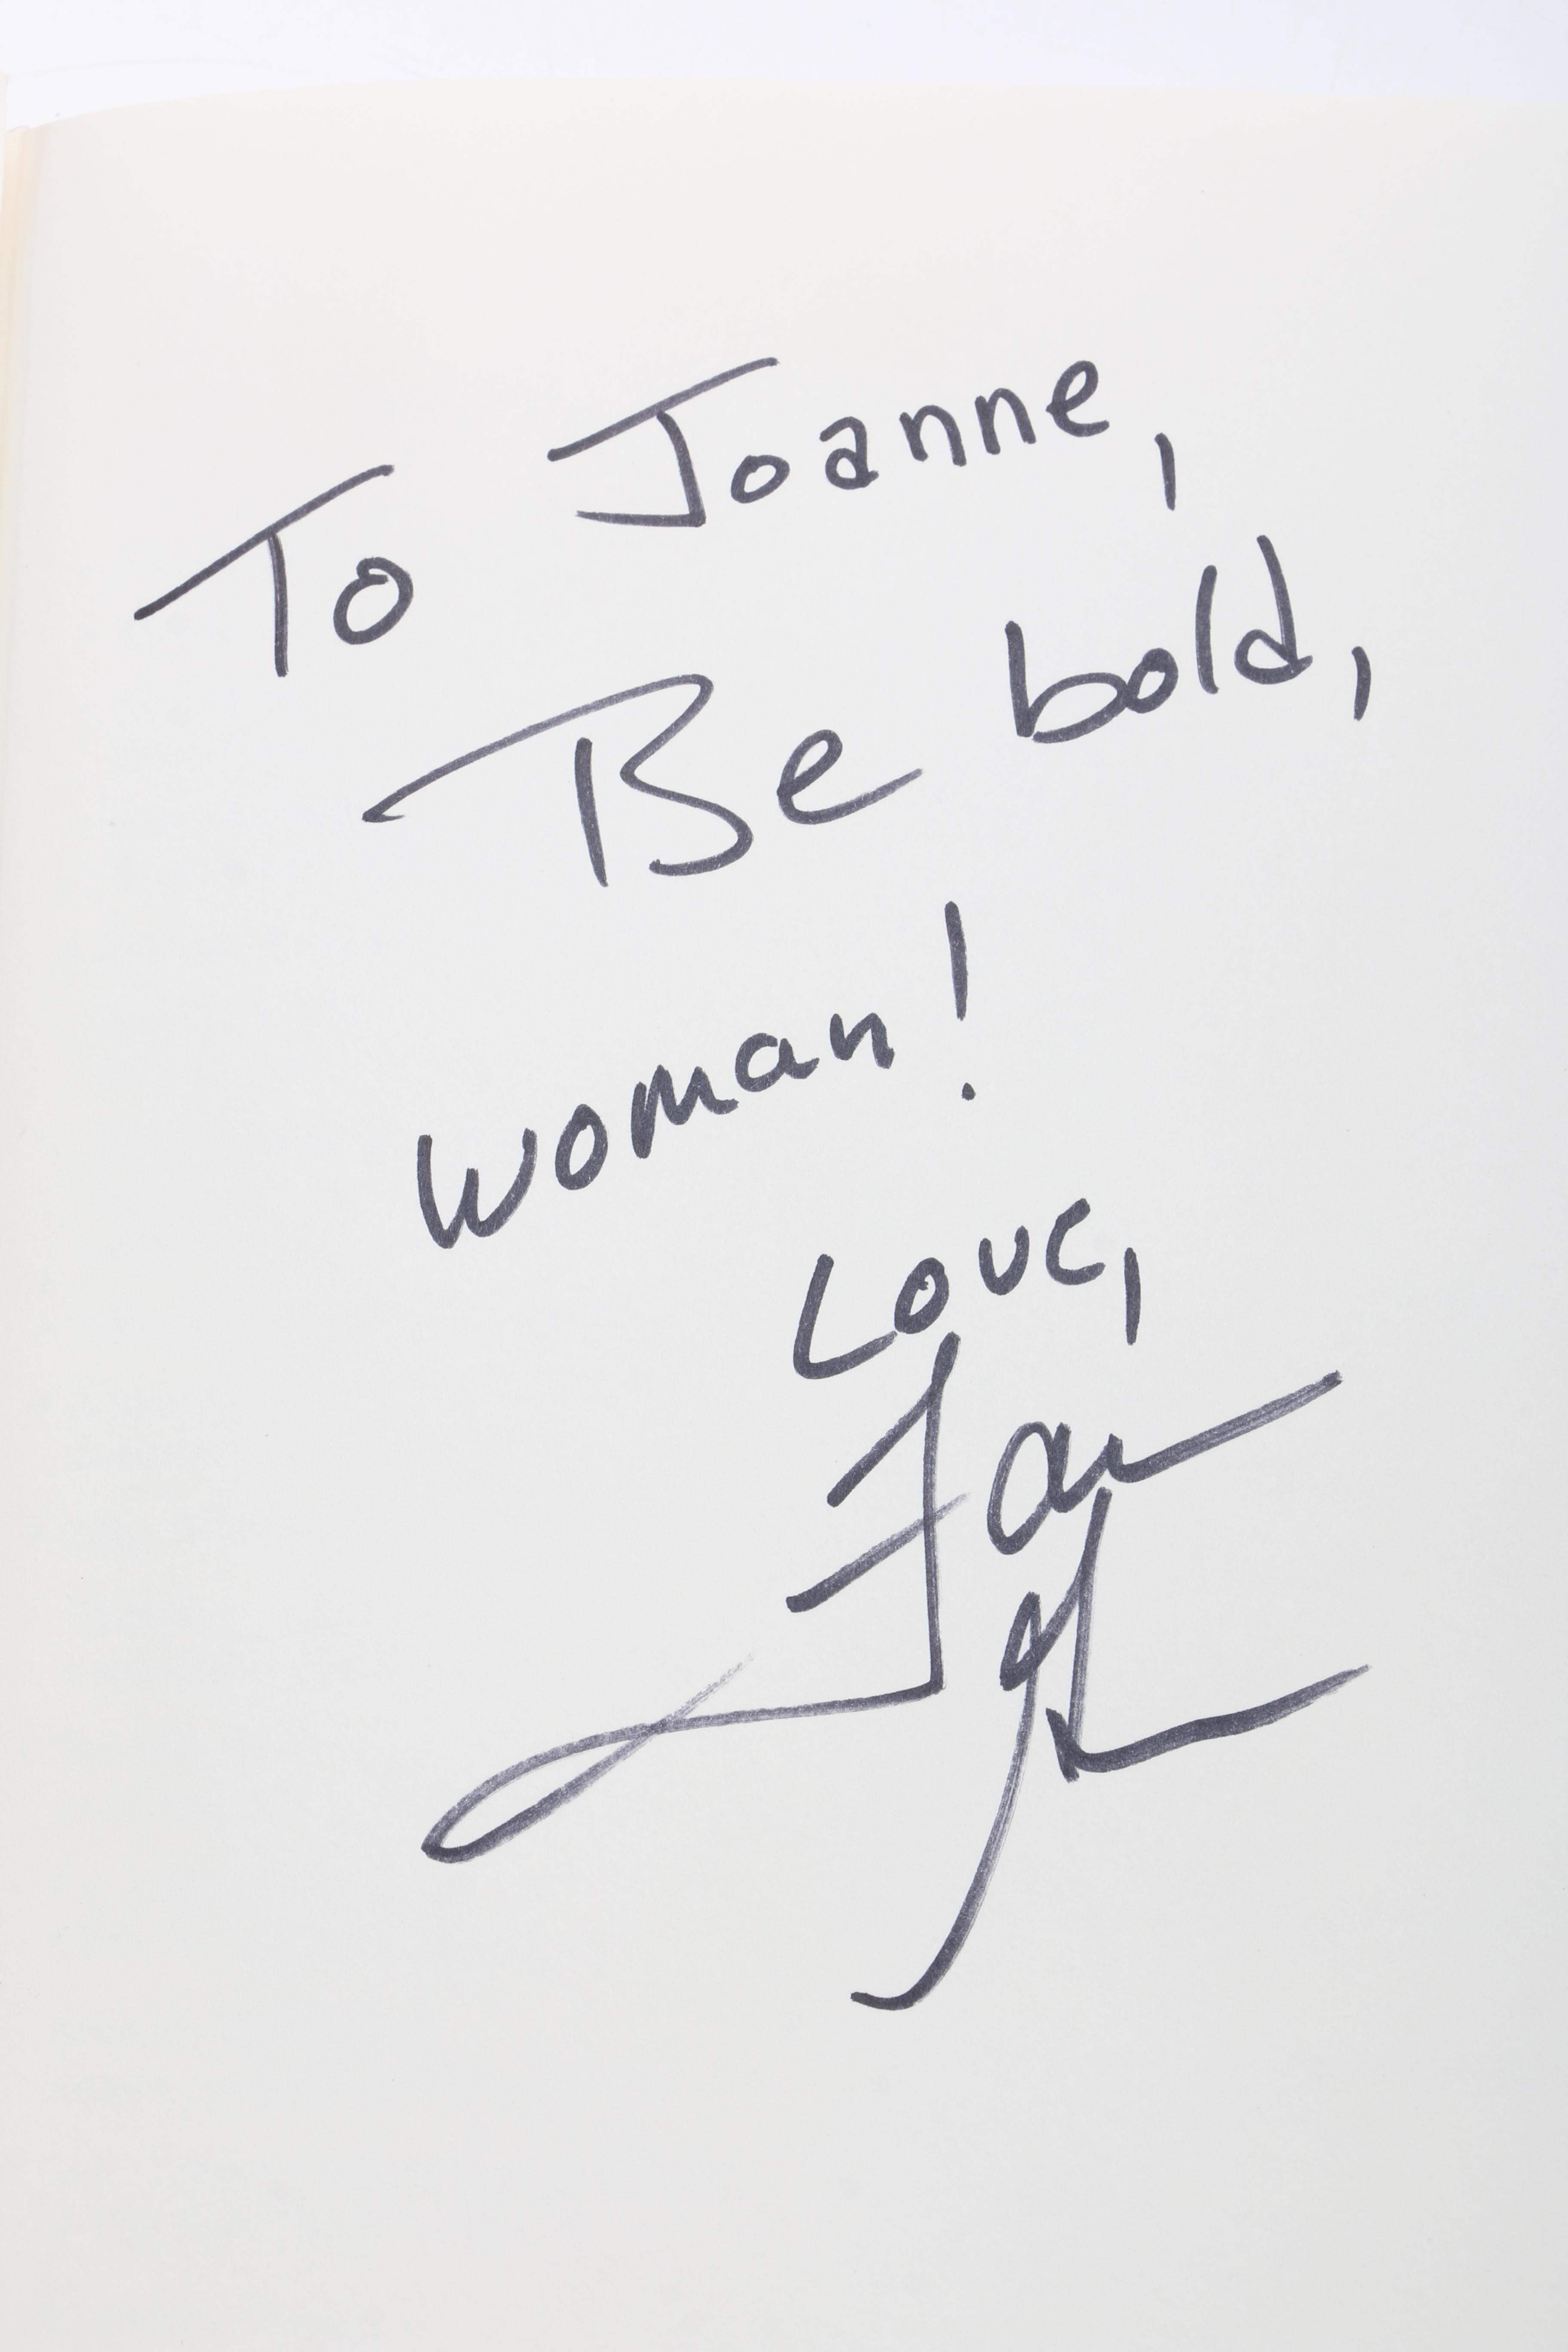 To Joanne,
Be bold,
woman!
Love,